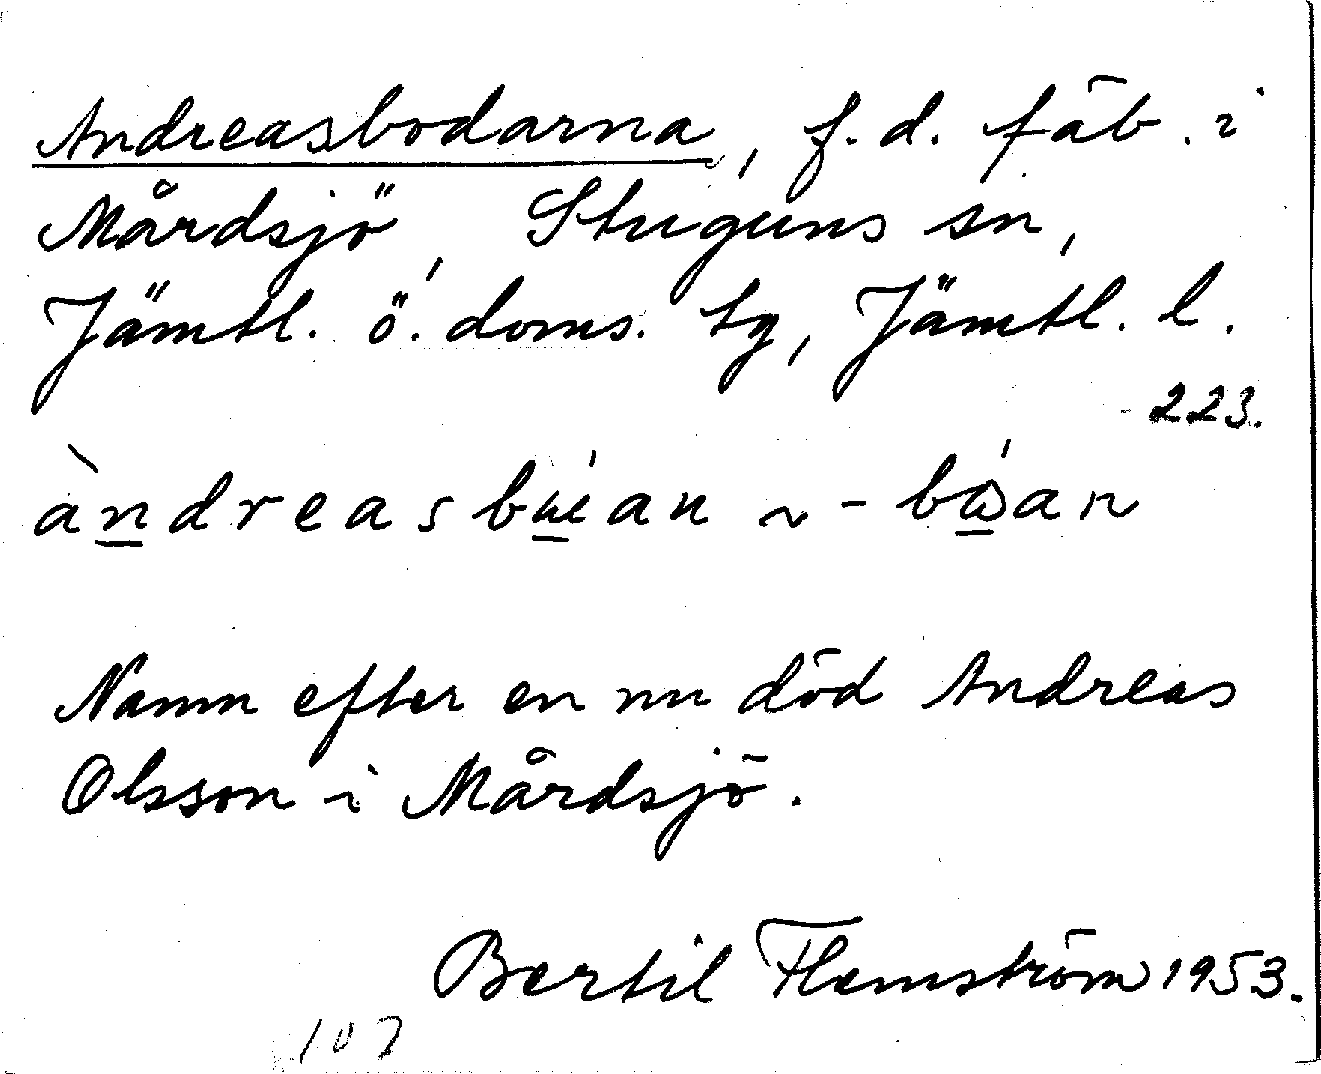 Andreasbodarna, f.d. fäb. i
Mårdsjö, Stuguns sn,
Jämtl. ö. doms. tg, Jämtl. l.
223.
àndreasb an ~ -b an
Namn efter en nu död Andreas
Olsson i Mårdsjö.
Bertil Flemström 1953.
107